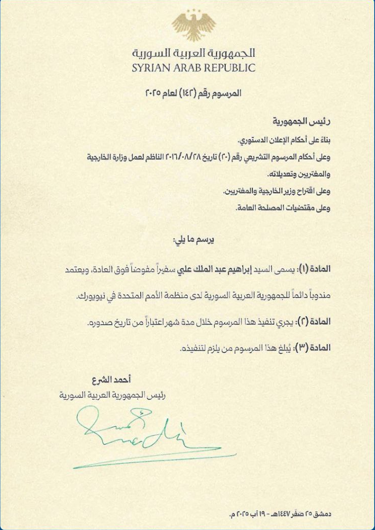 الجمهورية العربية السورية
SYRIAN ARAB REPUBLIC
المرسوم رقم (١٤٢) لعام ٢٠٢٥
رئيس الجمهورية
بناءً على أحكام الإعلان الدستوري.
وعلى أحكام المرسوم التشريعي رقم (٢٠) تاريخ ٢٠١٦/٠٨/٢٨ الناظم لعمل وزارة الخارجية
والمغتربين وتعديلاته.
وعلى اقتراح وزير الخارجية والمغتربين.
وعلى مقتضيات المصلحة العامة.
يرسم ما يلي:
المادة (١): يسمى السيد إبراهيم عبد الملك علبي سفيراً مفوضاً فوق العادة، ويعتمد
مندوباً دائماً للجمهورية العربية السورية لدى منظمة الأمم المتحدة في نيويورك.
المادة (٢): يجري تنفيذ هذا المرسوم خلال مدة شهر اعتباراً من تاريخ صدوره.
المادة (٣): يُبلغ هذا المرسوم من يلزم لتنفيذه.
أحمد الشرع
رئيس الجمهورية العربية السورية
دمشق ٢٥ صفر ١٤٤٧هـ - ١٩ آب ٢٠٢٥ م.